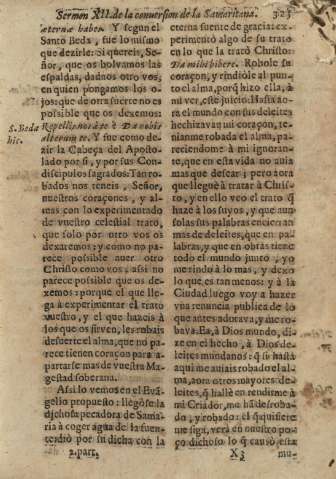 Sermon XII. de la conuersion de la Samaritana. 323
æternæ habes. Y segun el
Santo Beda, fue lo mismo
que dezirle: Si quereis, Se-
ñor, que os bolvamos las
espaldas, dadnos otro vos,
en quien pongamos los o-
jos: que de otra suerte no es
possible que os dexemos:
S. Beda
hic.
Repellis nos à te? Da nobis
alterum te. Y fue como de-
zir la Cabeça del Aposto-
lado por sí, y por sus Con-
discipulos sagrados: Tan ro-
bados nos teneis, Señor,
nuestros coraçones, y al-
mas con lo experimentado
de vuestro celestial trato,
que solo por otro vos os
dexaremos: y como no pa-
rece possible auer otro
Christo como vos, assi no
parece possible que os de-
xemos: porque el que lle-
ga à experimentar el trato
vuestro, y el que hazeis à
los que os sirven, les robais
de suerte el alma, que no pa-
rece tienen coraçon para a-
partarse mas de vuestra Ma-
gestad soberana.
Assi lo vemos en el Eva-
gelio propuesto: llegòse la
dichosa pecadora de Sama-
ria à coger agua de la fuen-
te
dio por su dicha con la
2. part.
eterna fuente de gracia: ex-
perimentò algo de su trato
en lo que la tratò Christo:
Da mihi bibere. Robole su
coraçon, y rindiòle al pun-
to el alma, porq hizo ella, à
mi ver, este juicio: Hasta ao-
ra el mundo con sus deleites
hechizava mi coraçon, te-
niame robada el alma, pa-
reciendome à mi ignoran-
te, que en esta vida no auia
mas que desear; pero aora
que lleguè à tratar à Chris-
to, y en ello veo el trato q
haze à los suyos, y que aun
solas sus palabras encierran
mas de deleites, que en pa-
labras, y que en obras tiene
todo el mundo junto, yo
me rindo à lo mas, y dexo
lo que es tan menos: y à la
Ciudad luego voy à hazer
vna renuncia publica de lo
que antes adorava, y me ro-
bava. Ea, à Dios mundo, di-
ze en el hecho, à Dios de-
leites mundanos: q si hasta
aqui me auiais robado el al-
ma, aora otros mayores de-
leites, q hallè en rendirme à
mi Criador, me ha desrena-
do, y robado: el q quisiere
me siga, verà en nuestro po-
ço dichoso lo q causò esta
X3 mu-